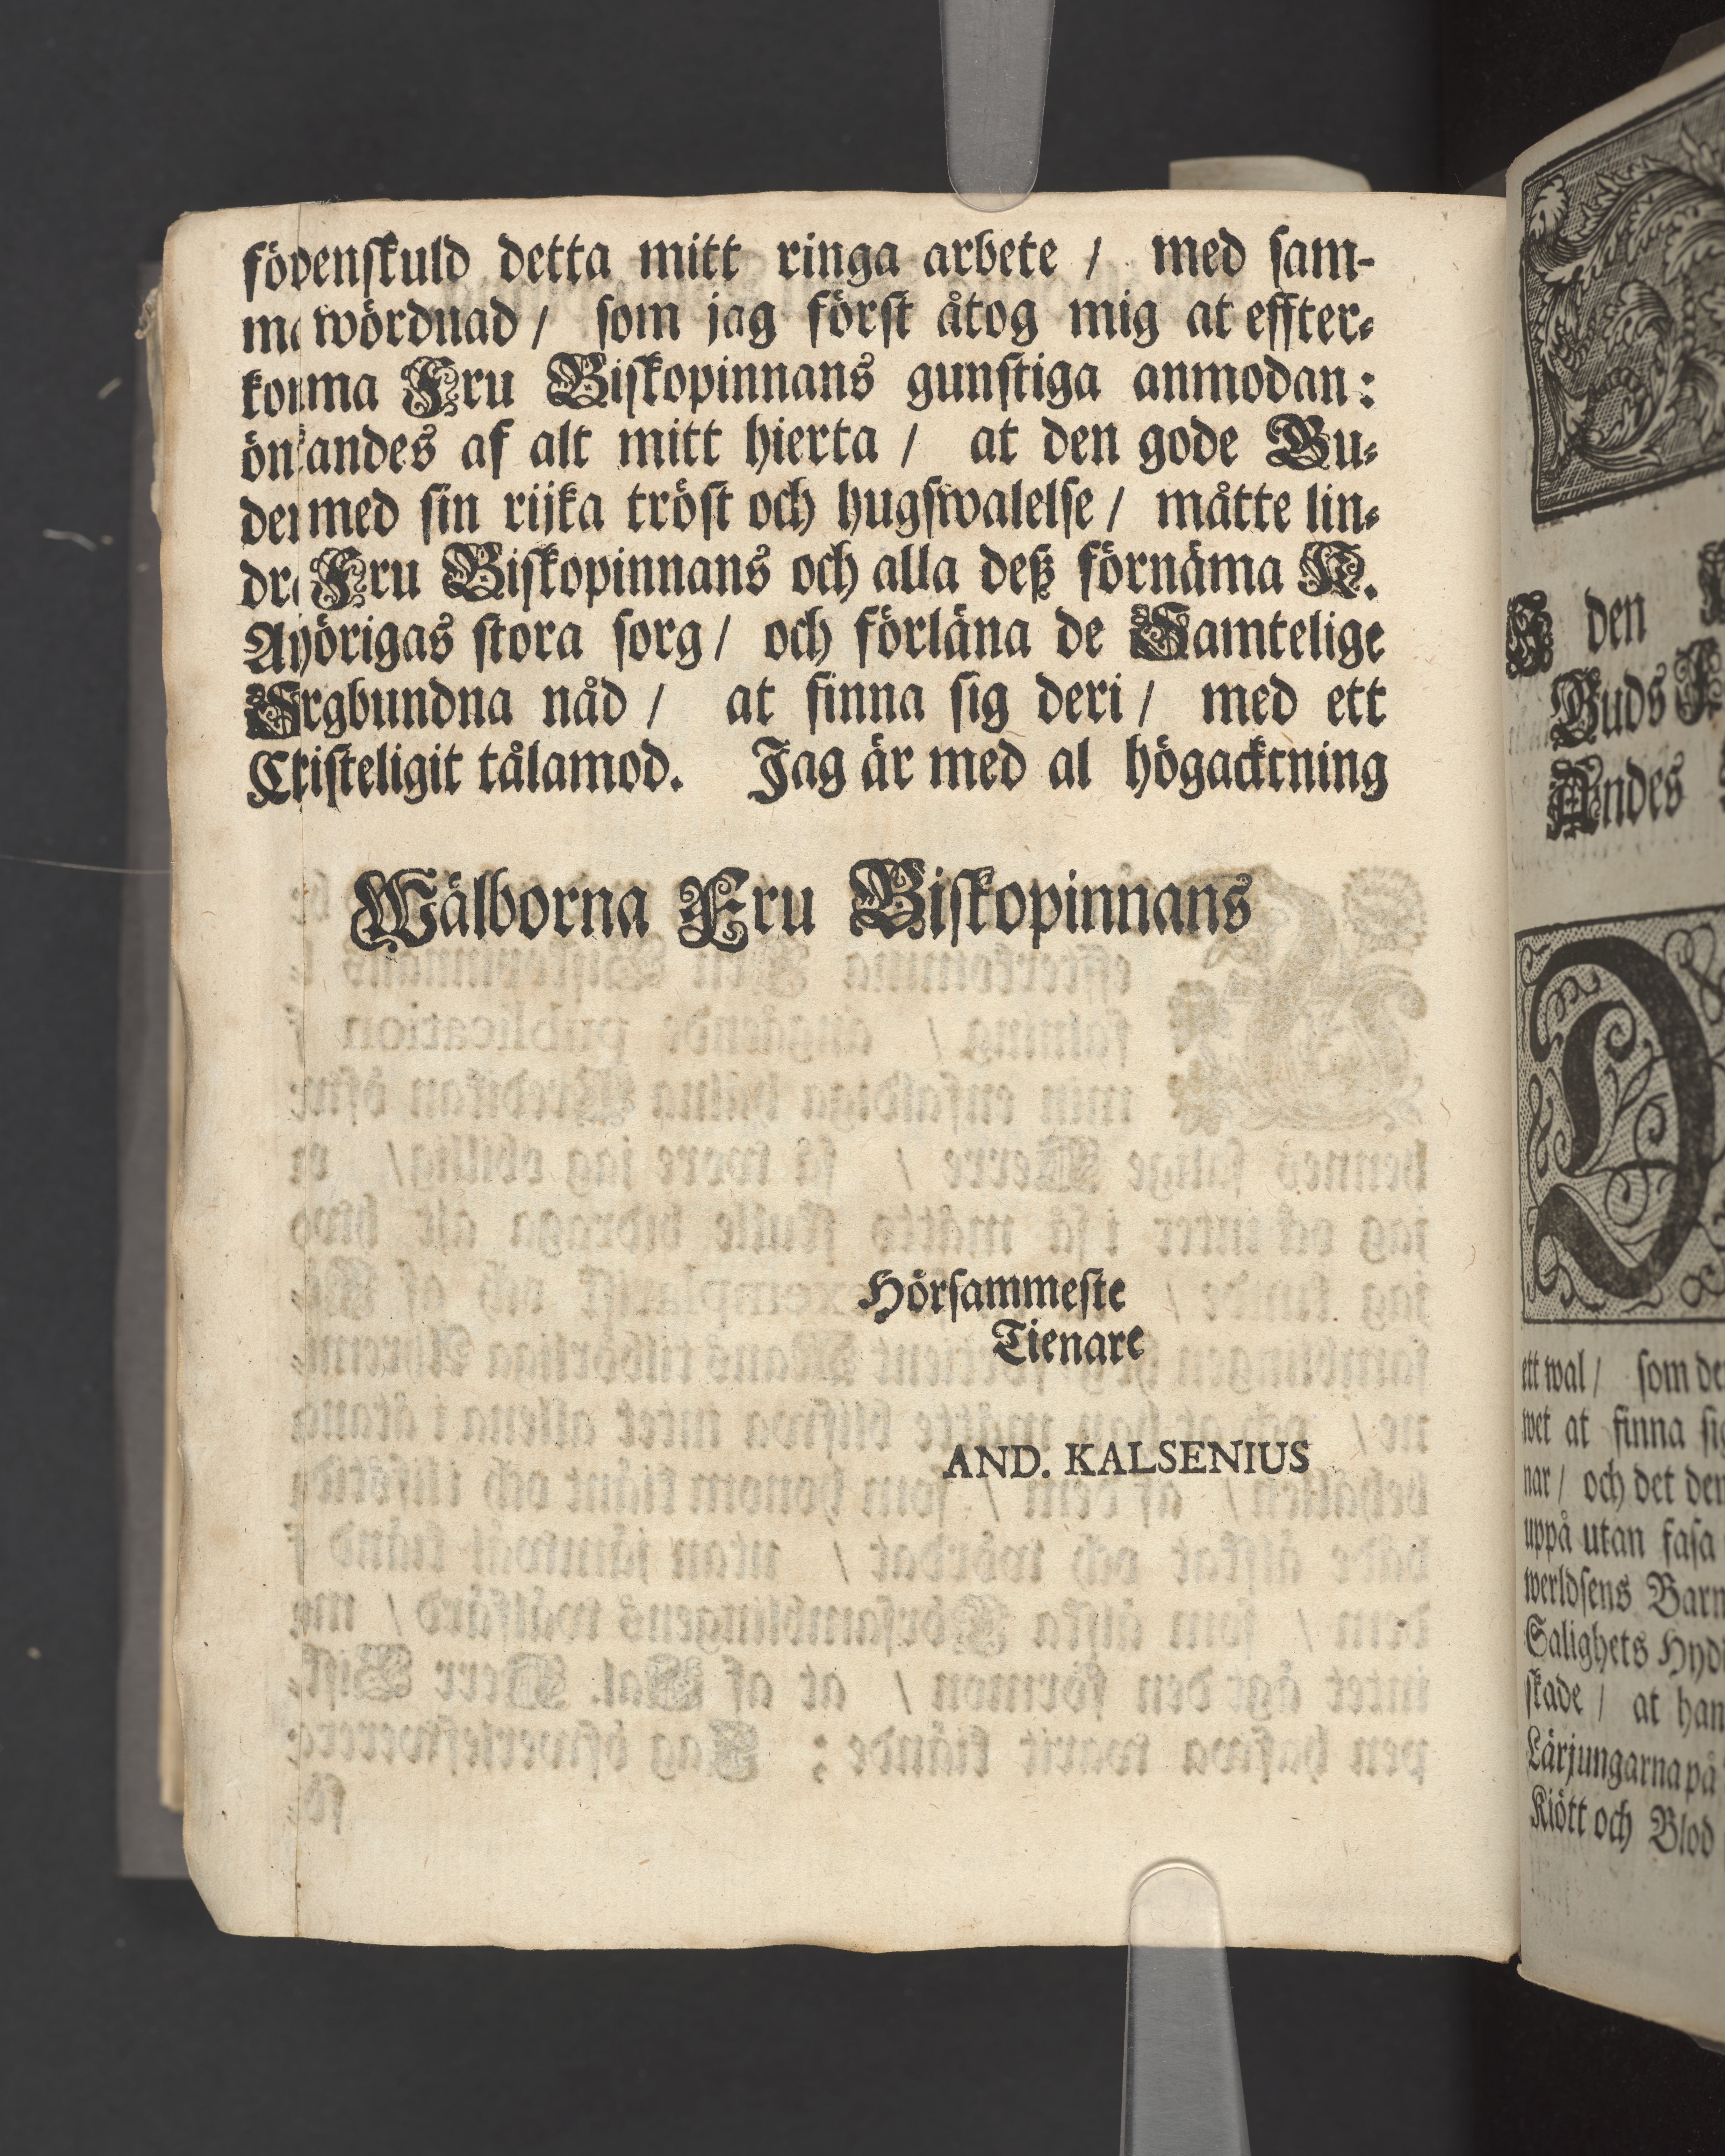 föðenskuld detta mitt ringa arbete / med sam-
wördnad / som jag först åtog mig at effter-
komma Fru Biskopinnans gunstiga anmodan:
önskandes af alt mitt hierta / at den gode Gu-
den med sin rijka tröst och hugswalelse / måtte lin-
dra Fru Biskopinnans och alla deß förnäma H.
Anhörigas stora sorg / och förläna de Samtelige
Sorgbundna nåd / at finna sig deri / med ett
Christeligit tålamod. Jag är med al högacktning
Wälborna Fru Biskopinnans
Hörsammeste
Tienare
AND. KALSENIUS
den
Guds
Andes
D
ett wal / som de
wet at finna sig
nar / och det den
uppå utan fasa
werldsens Barn
Salighets Hyd
skade / at han
Lärjungarna på
Kiött och Blod